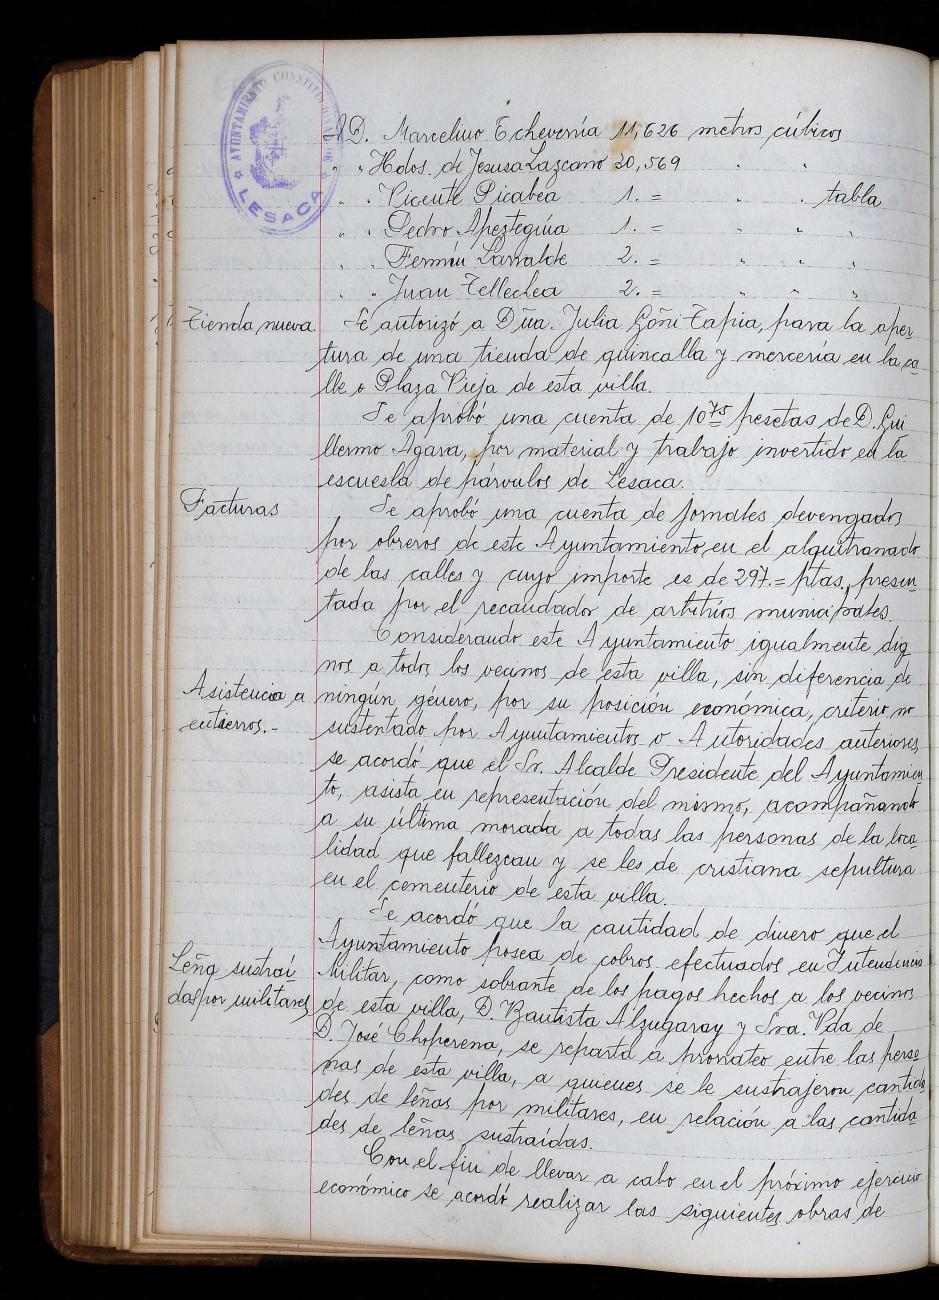 AYUNTAMIENTO CONSTITUCIONAL DE
LESACA
D. Marcelino Echeverría 11,626 metros cúbicos
" " Hdos. de Jesusa Lazcano 20,569 " "
" " Vicente Picabea 1. = " " tabla
" " Pedro Apezteguía 1. = " " "
" " Fermín Larralde 2. = " " "
" " Juan Tellechea 2. = " " "
Tienda nueva
Se autorizó a Dña. Julia Goñi Tapia, para la aper
tura de una tienda de quincalla y mercería en la ca
lle o Plaza Vieja de esta villa.
Se aprobó una cuenta de 10 75 pesetas de D. Gui
llermo Agara, por material y trabajo invertido en la
escuesla de párvulos de Lesaca.
Facturas
Se aprobó una cuenta de jornales devengados
por obreros de este Ayuntamiento en el alquitranado
de las calles y cuyo importe es de 297.= ptas., presen
tada por el recaudador de arbitrios municipales.
Considerando este Ayuntamiento igualmente dig
nos a todos los vecinos de esta villa, sin diferencia de
Asistencia a
entierros.-
ningún género, por su posición económica, criterio no
sustentado por Ayuntamientos o Autoridades anteriores,
se acordó que el Sr. Alcalde Presidente del Ayuntamien
to, asista en representación del mismo, acompañando
a su última morada a todas las personas de la loca
lidad que fallezcan y se les de cristiana sepultura
en el cementerio de esta villa.
Se acordó que la cantidad de dinero que el
Leña sustraí
das por militares
Ayuntamiento posea de cobros efectuados en Intendencia
Militar, como sobrante de los pagos hechos a los vecinos
de esta villa, D. Bautista Alzugaray y Sra. Vda de
D. José Choperena, se reparta a prorrateo entre las perso
nas de esta villa, a quienes se le sustrajeron cantida
des de leñas por militares, en relación a las cantida
des de leñas sustraídas.
Con el fin de llevar a cabo en el próximo ejercicio
económico se acordó realizar las siguientes obras de